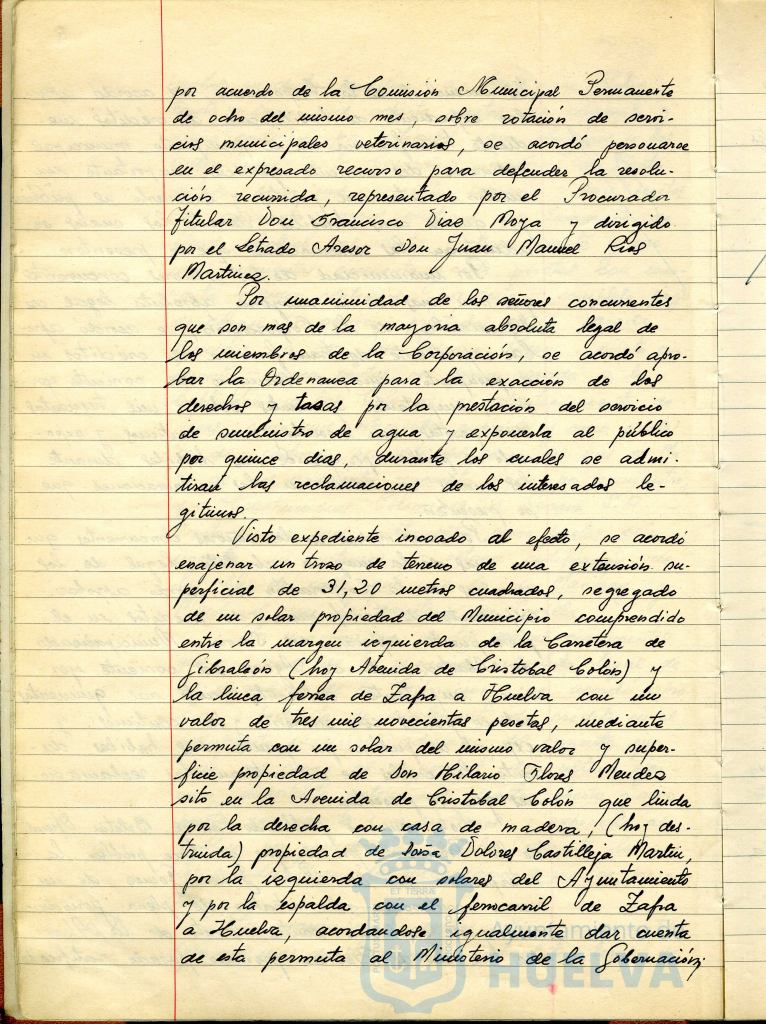 por acuerdo de la Comisión Municipal Permanente
de ocho del mismo mes, sobre rotación de servi-
cios municipales veterinarios, se acordó personarse
en el expresado recurso para defender la resolu-
ción recurrida, representado por el Procurador
titular Don Francisco Diaz Moya y dirigido
por el Letrado Asesor Don Juan Manuel Rios
Martinez.
Por unanimidad de los señores concurrentes
que son mas de la mayoria absoluta legal de
los miembros de la Corporación, se acordó apro-
bar la Ordenanza para la exacción de los
derechos y tasas por la prestación del servicio
de suministro de agua y exponerla al público
por quince dias, durante los cuales se admi-
tiran las reclamaciones de los interesados le-
gitimos.
Visto expediente incoado al efecto, se acordó
enajenar un trozo de terreno de una extensión su-
perficial de 31,20 metros cuadrados, segregado
de un solar propiedad del Municipio comprendido
entre la margen izquierda de la Carretera de
Gibraleón (hoy Avenida de Cristobal Colón) y
la linea ferrea de Zafra a Huelva con un
valor de tres mil novecientas pesetas, mediante
permuta con un solar del mismo valor y super-
ficie propiedad de Don Hilario Flores Mendez
sito en la Avenida de Cristobal Colón que linda
por la derecha con casa de madera, (hoy des-
truida) propiedad de Doña Dolores Castilleja Martin,
por la izquierda con solares del Ayuntamiento
y por la espalda con el ferrocarril de Zafra
a Huelva, acordandose igualmente dar cuenta
de esta permuta al Ministerio de la Gobernación,
ET TERRA
HUELVA